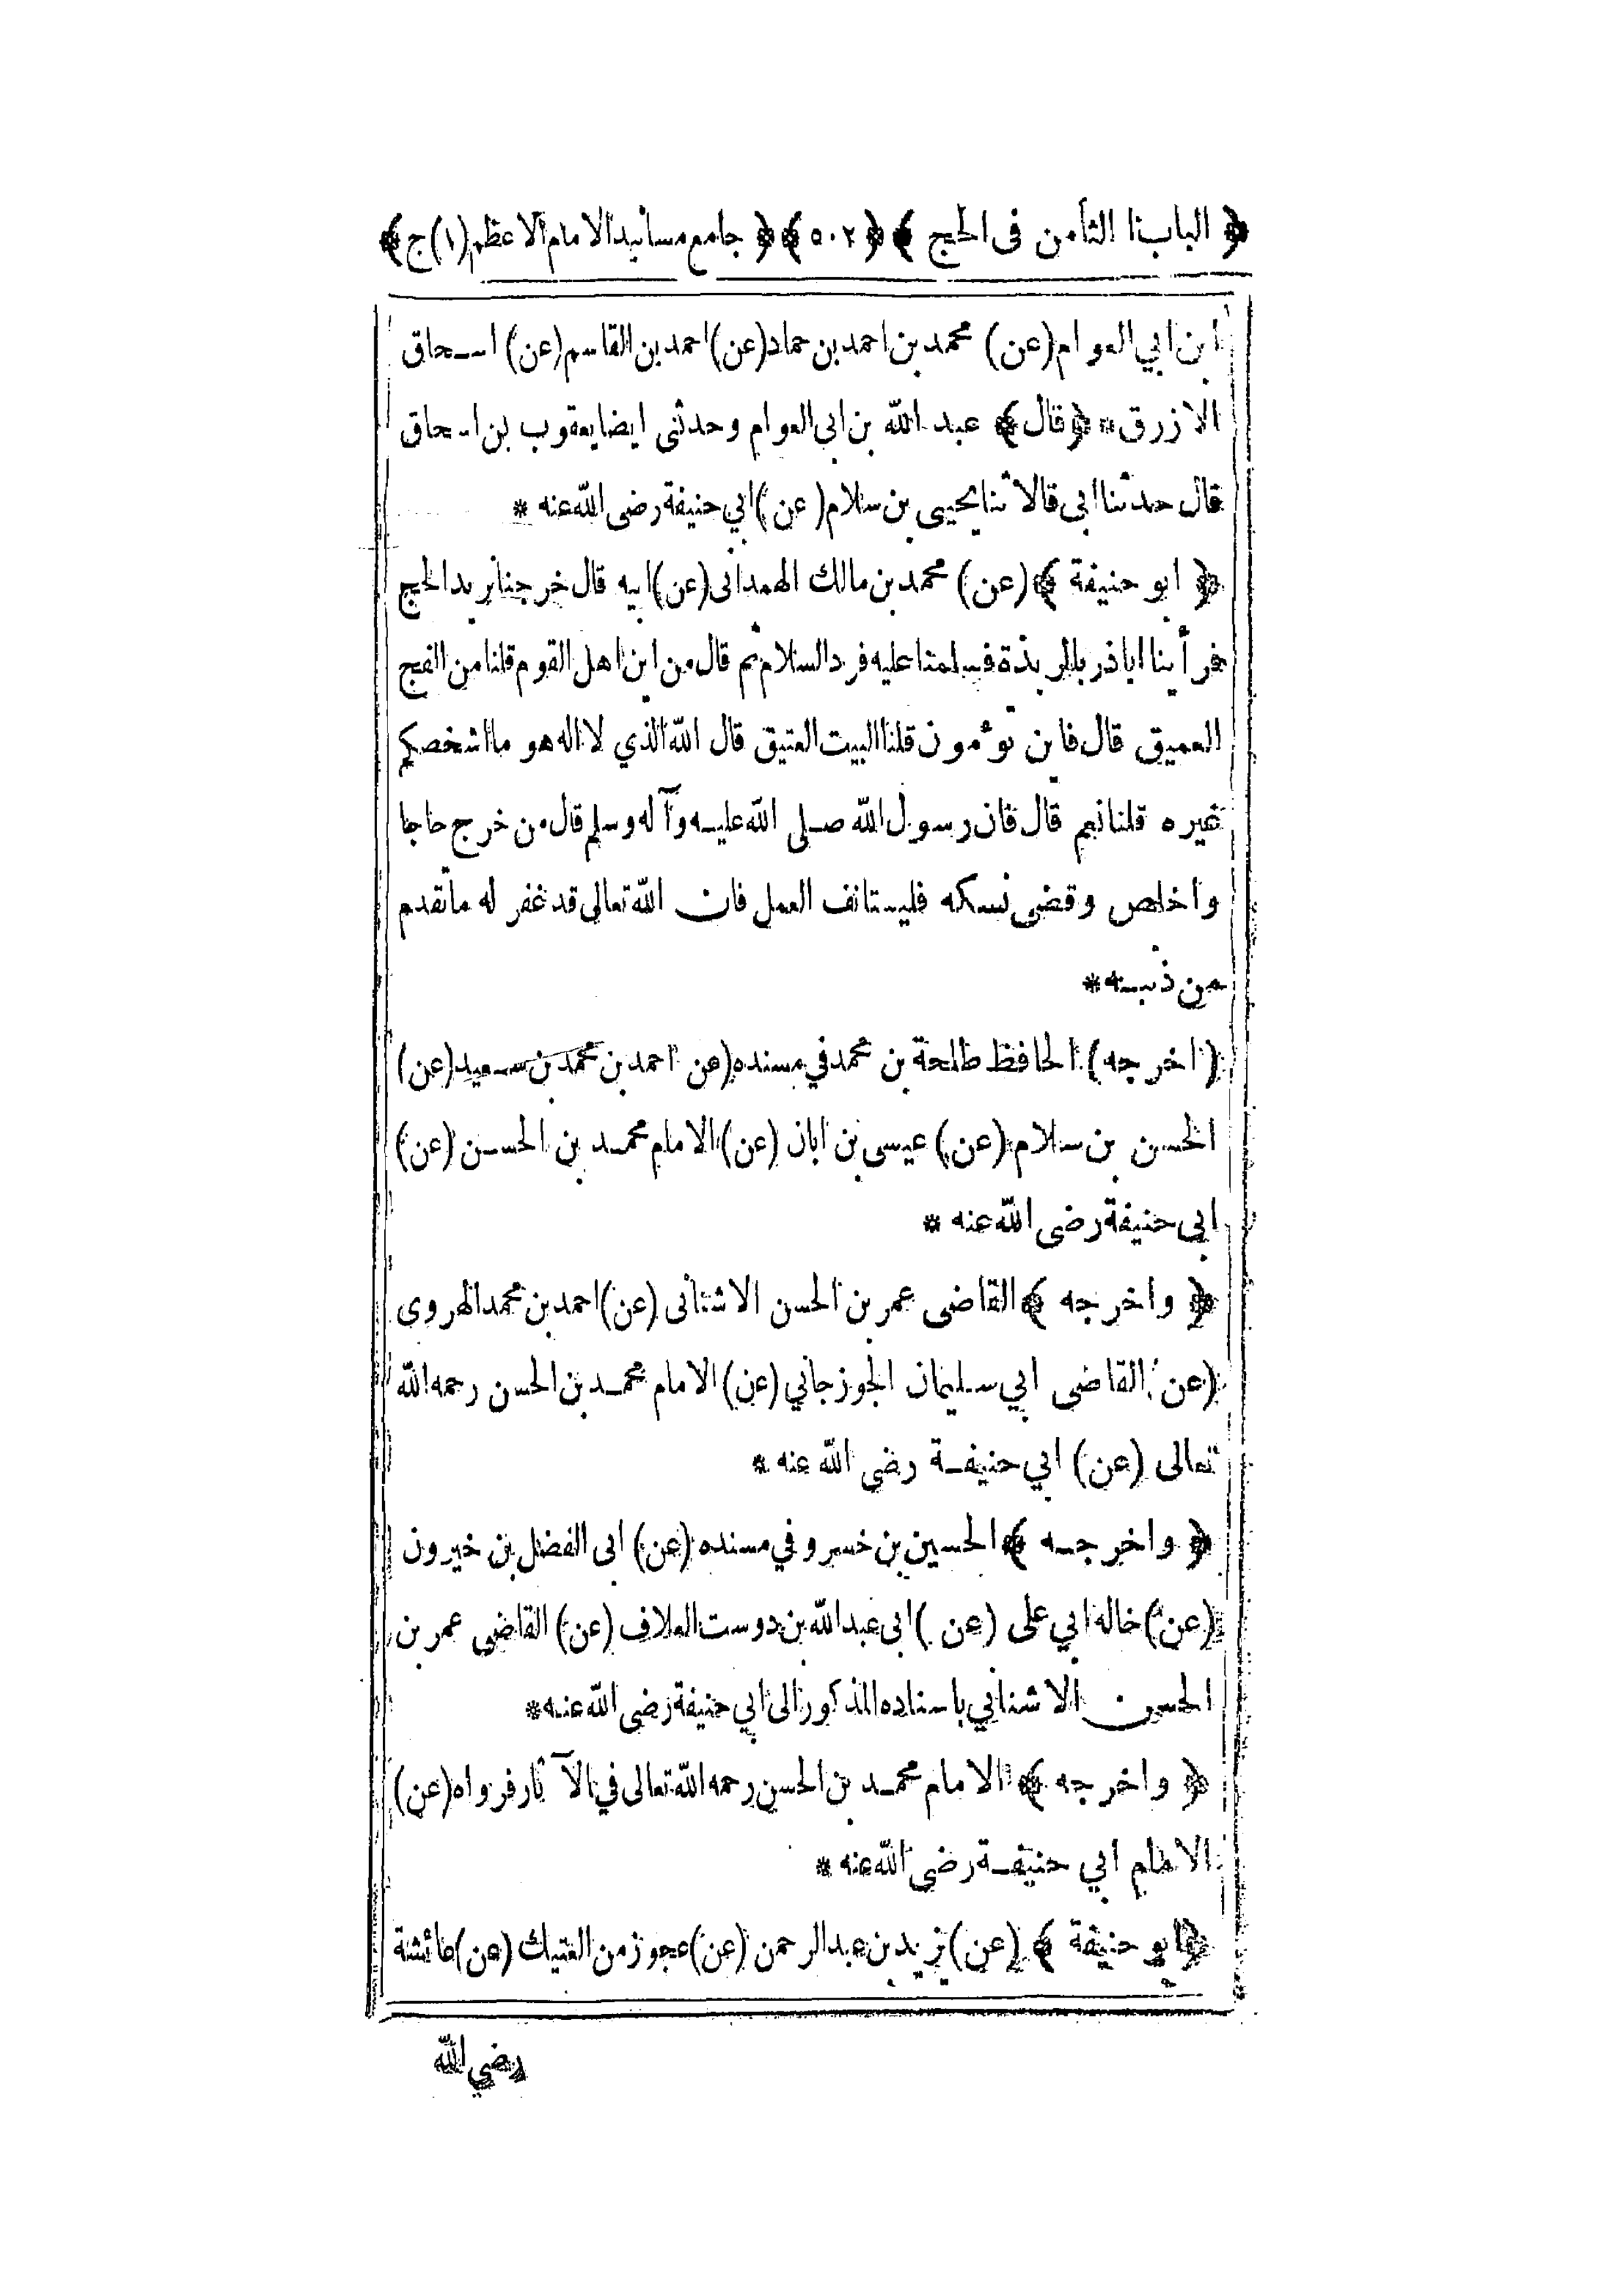 ﴿ الباب الثامن فى الحج ﴾ ﴿ ٥٠٢ ﴾ ﴿ جامع مسانيد الامام الاعظم (١) ج ﴾
ابن ابي العوام (عن) محمد بن احمد بن حماد (عن) احمد بن القاسم (عن) اسحاق
الازرق * ﴿ قال ﴾ عبد الله بن ابى العوام وحدثنى ايضا يعقوب بن اسحاق
قال حدثنا ابى قالا ثنا يحيى بن سلام (عن) ابي حنيفة رضى الله عنه *
﴿ ابو حنيفة ﴾ (عن) محمد بن مالك الهمدانى (عن) ابيه قال خرجنا نريد الحج
فرأينا اباذر بالربذة فسلمنا عليه فرد السلام ثم قال من اين اهل القوم قلنا من الفج
العميق قال فاين تؤمون قلنا البيت العتيق قال الله الذي لا اله هو ما اشخصكم
غيره قلنا نعم قال فان رسول الله صلى الله عليه وآله وسلم قال من خرج حاجا
واخلص وقضى نسكه فليستانف العمل فان الله تعالى قد غفر له ما تقدم
من ذنبه *
(اخرجه) الحافظ طلحة بن محمد في مسنده (عن احمد بن محمد بن سعيد (عن)
الحسن بن سلام (عن) عيسى بن ابان (عن) الامام محمد بن الحسن (عن)
ابى حنيفة رضى الله عنه *
﴿ واخرجه ﴾ القاضى عمر بن الحسن الاشنانى (عن) احمد بن محمد الهروى
(عن) القاضى ابي سليمان الجوزجاني (عن) الامام محمد بن الحسن رحمه الله
تعالى (عن) ابي حنيفة رضى الله عنه *
﴿ واخرجه ﴾ الحسين بن خسرو في مسنده (عن) ابى الفضل بن خيرون
(عن) خاله ابي على (عن) ابى عبد الله بن دوست العلاف (عن) القاضى عمر بن
الحسن الاشناني باسناده المذكور الى ابي حنيفة رضى الله عنه *
﴿ واخرجه ﴾ الامام محمد بن الحسن رحمه الله تعالى في الآثار فرواه (عن)
الامام ابي حنيفة رضى الله عنه *
﴿ ابو حنيفة ﴾ (عن) يزيد بن عبد الرحمن (عن) عجوز من العتيك (عن) عائشة
رضي الله